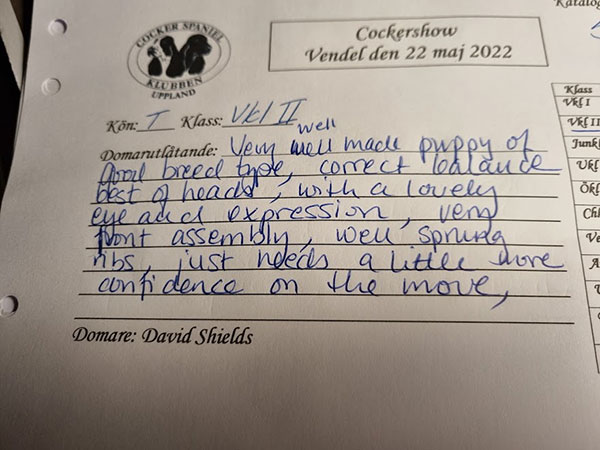 Katalog
COCKER SPANIEL
KLUBBEN
UPPLAND
Cockershow
Vendel den 22 maj 2022
Kön: T Klass: Vkl II
well
Domarutlåtande: Very well made puppy of
good breed type, correct balance
best of heads, with a lovely
eye and expression, very
front assembly, well sprung
ribs, just needs a little more
confidence on the move,
Domare: David Shields
Klass
Vkl I
Vkl II
Junk
Ukl
Ökl
Ch
Ve
A